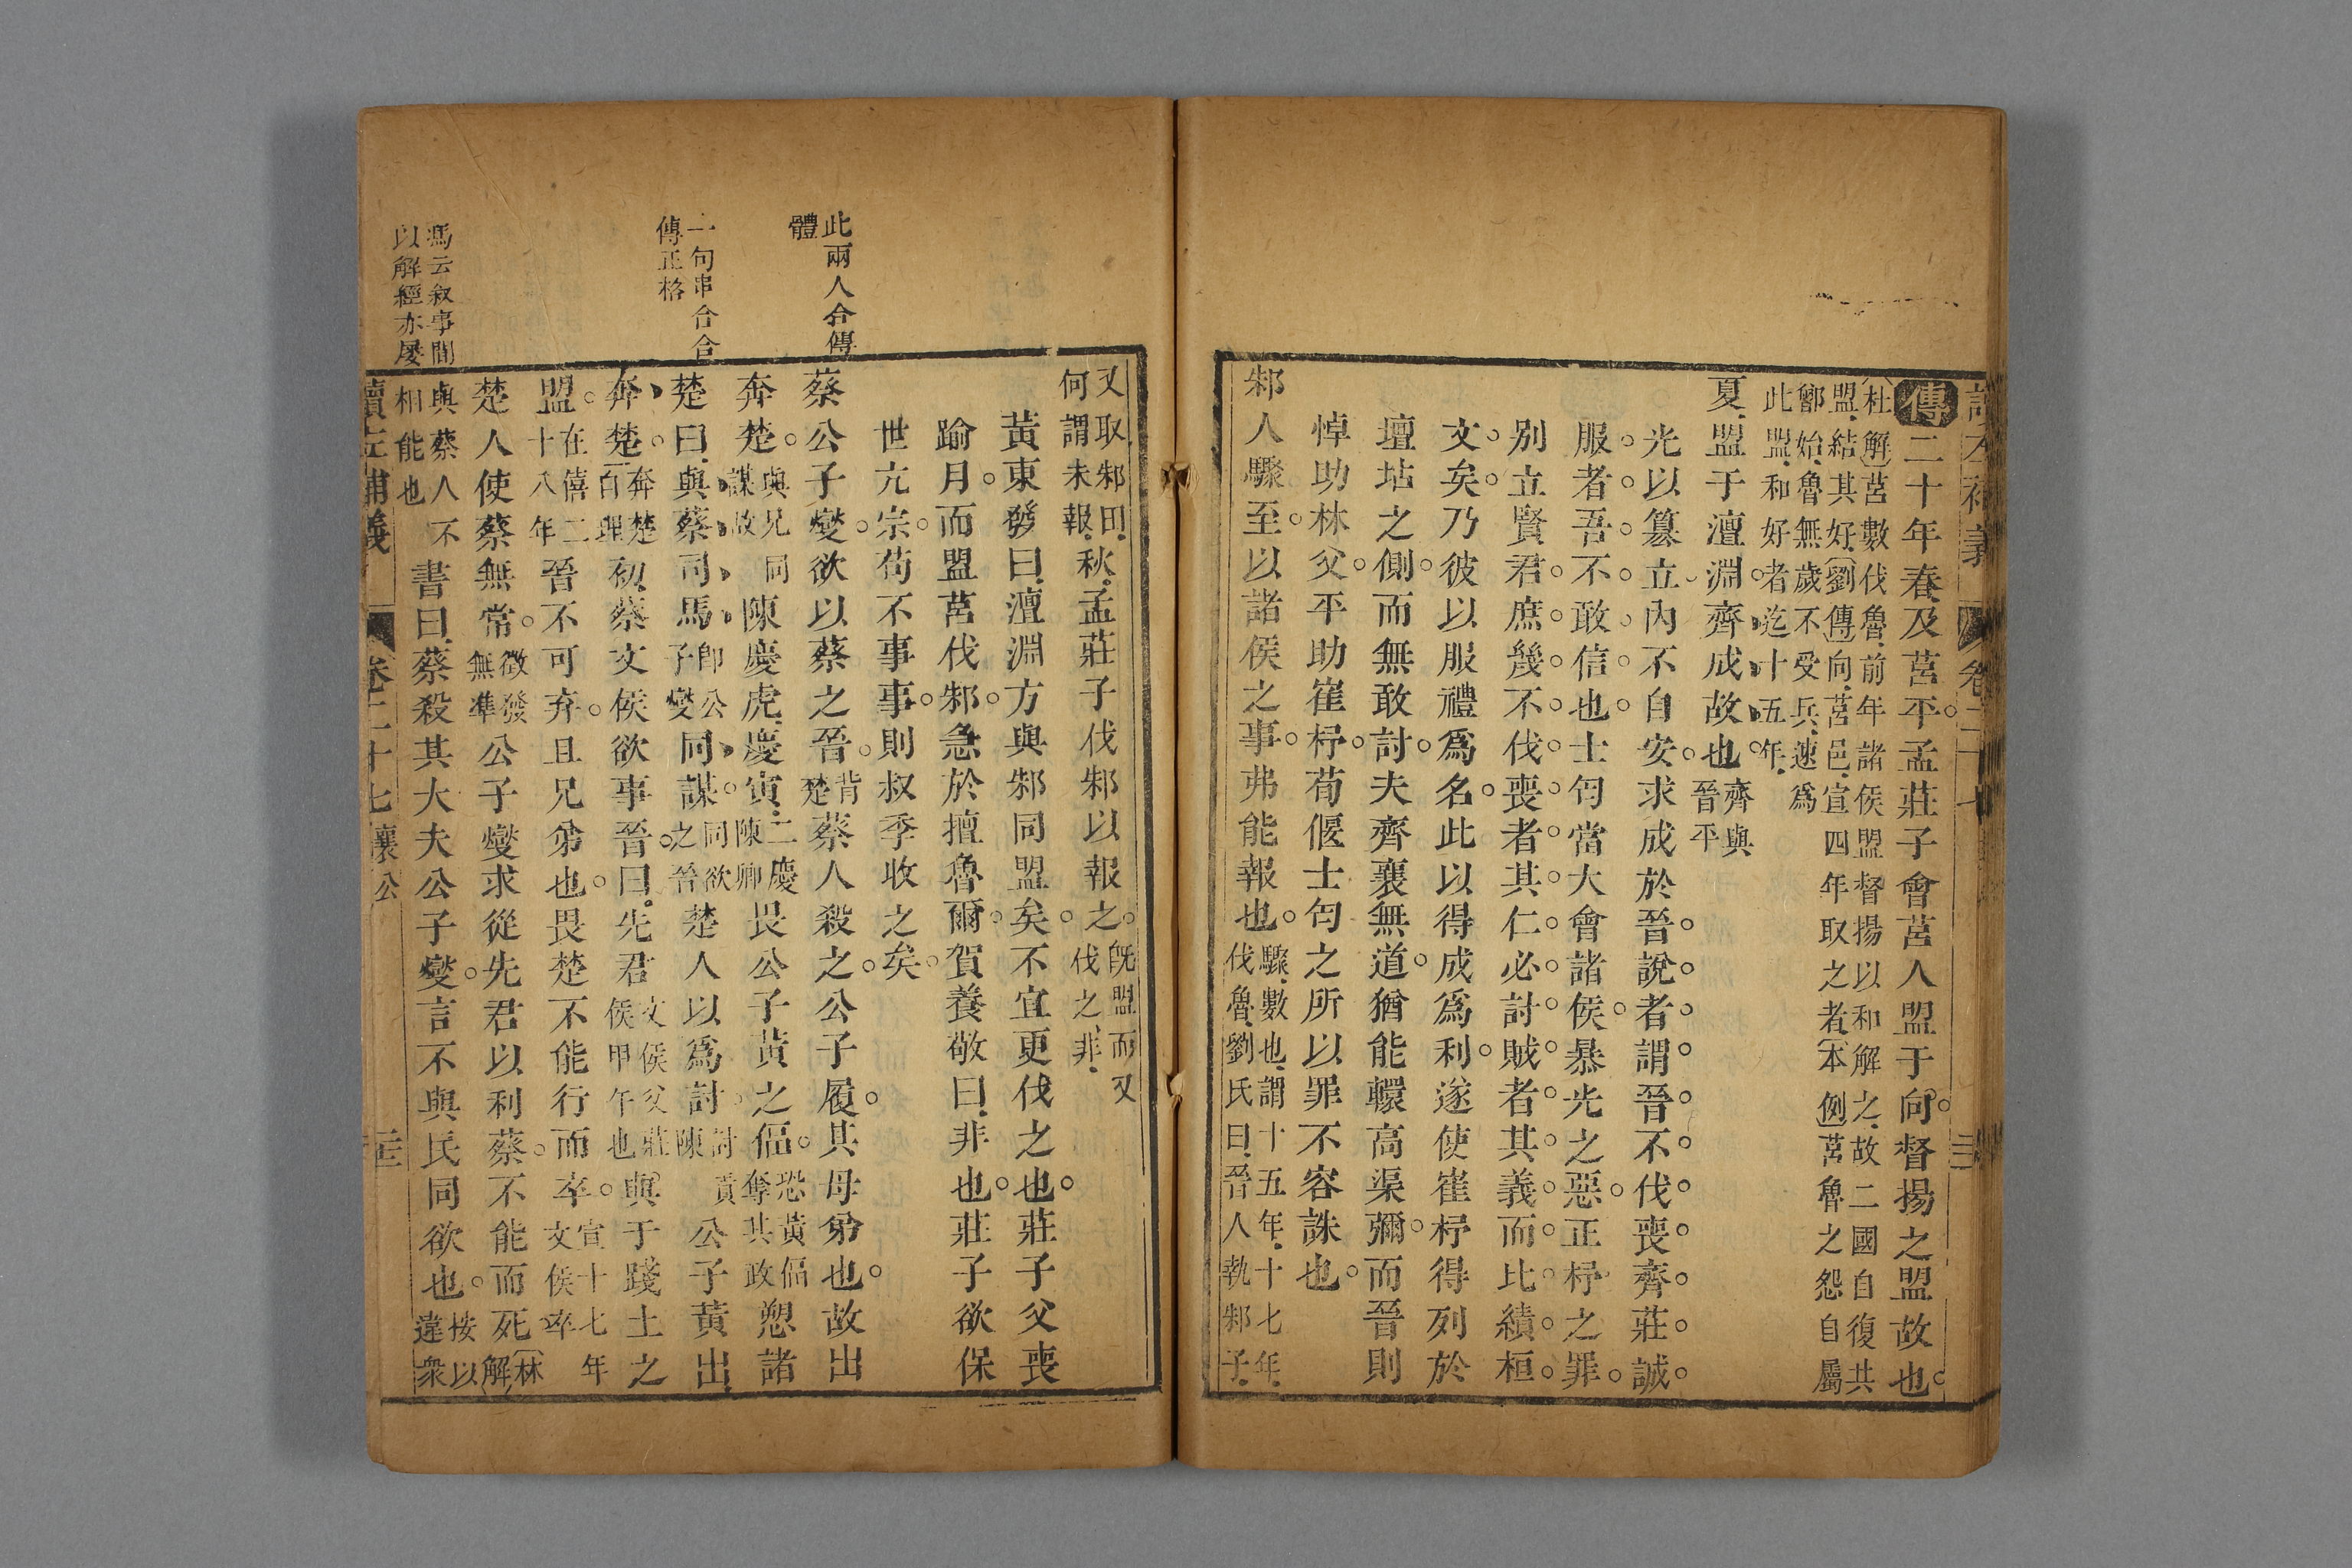 讀左補義 卷二十七
傳二十年春及莒平孟莊子會莒人盟于向督揚之盟故也
杜解莒數伐魯前年諸侯盟督揚以和解之故二國自復共
盟結其好劉傳向莒邑宣四年取之者本例莒魯之怨自屬
鄫始魯無歲不受兵速爲
此盟和好者迄十五年
夏盟于澶淵齊成故也齊與晉平
光以篡立內不自安求成於晉說者謂晉不伐喪齊莊誠
服者吾不敢信也士匄當大會諸侯暴光之惡正杼之罪
別立賢君庶幾不伐喪者其仁必討賊者其義而比績桓
文矣乃彼以服禮爲名此以得成爲利遂使崔杼得列於
壇坫之側而無敢討夫齊襄無道猶能轘高渠彌而晉則
悼助林父平助崔杼荀偃士匄之所以罪不容誅也
邾人驟至以諸侯之事弗能報也驟數也謂十五年十七年伐魯劉氏曰晉人執邾子
又取邾田何謂未報秋孟莊子伐邾以報之既盟而又伐之非
黃東發曰澶淵方與邾同盟矣不宜更伐之也莊子父喪
踰月而盟莒伐邾急於擅魯爾賀養敬曰非也莊子欲保
世亢宗苟不事事則叔季收之矣
此兩人合傳
體
蔡公子燮欲以蔡之晉背楚蔡人殺之公子履其母弟也故出
奔楚與兄同謀故陳慶虎慶寅二慶陳卿畏公子黃之偪恐黃偪奪其政愬諸
一句串合合
傳正格
楚曰與蔡司馬卽公子燮同謀同欲之晉楚人以爲討討陳責公子黃出
奔楚奔楚自理初蔡文侯欲事晉曰先君文侯父莊侯甲午也與于踐土之
盟在僖二十八年晉不可弃且兄弟也畏楚不能行而卒宣十七年文侯卒
楚人使蔡無常徵發無準公子燮求從先君以利蔡不能而死林解
馮云叙事間
以解經亦屡
與蔡人不相能也書曰蔡殺其大夫公子燮言不與民同欲也按以違衆
讀左補義 卷二十七 襄公 三